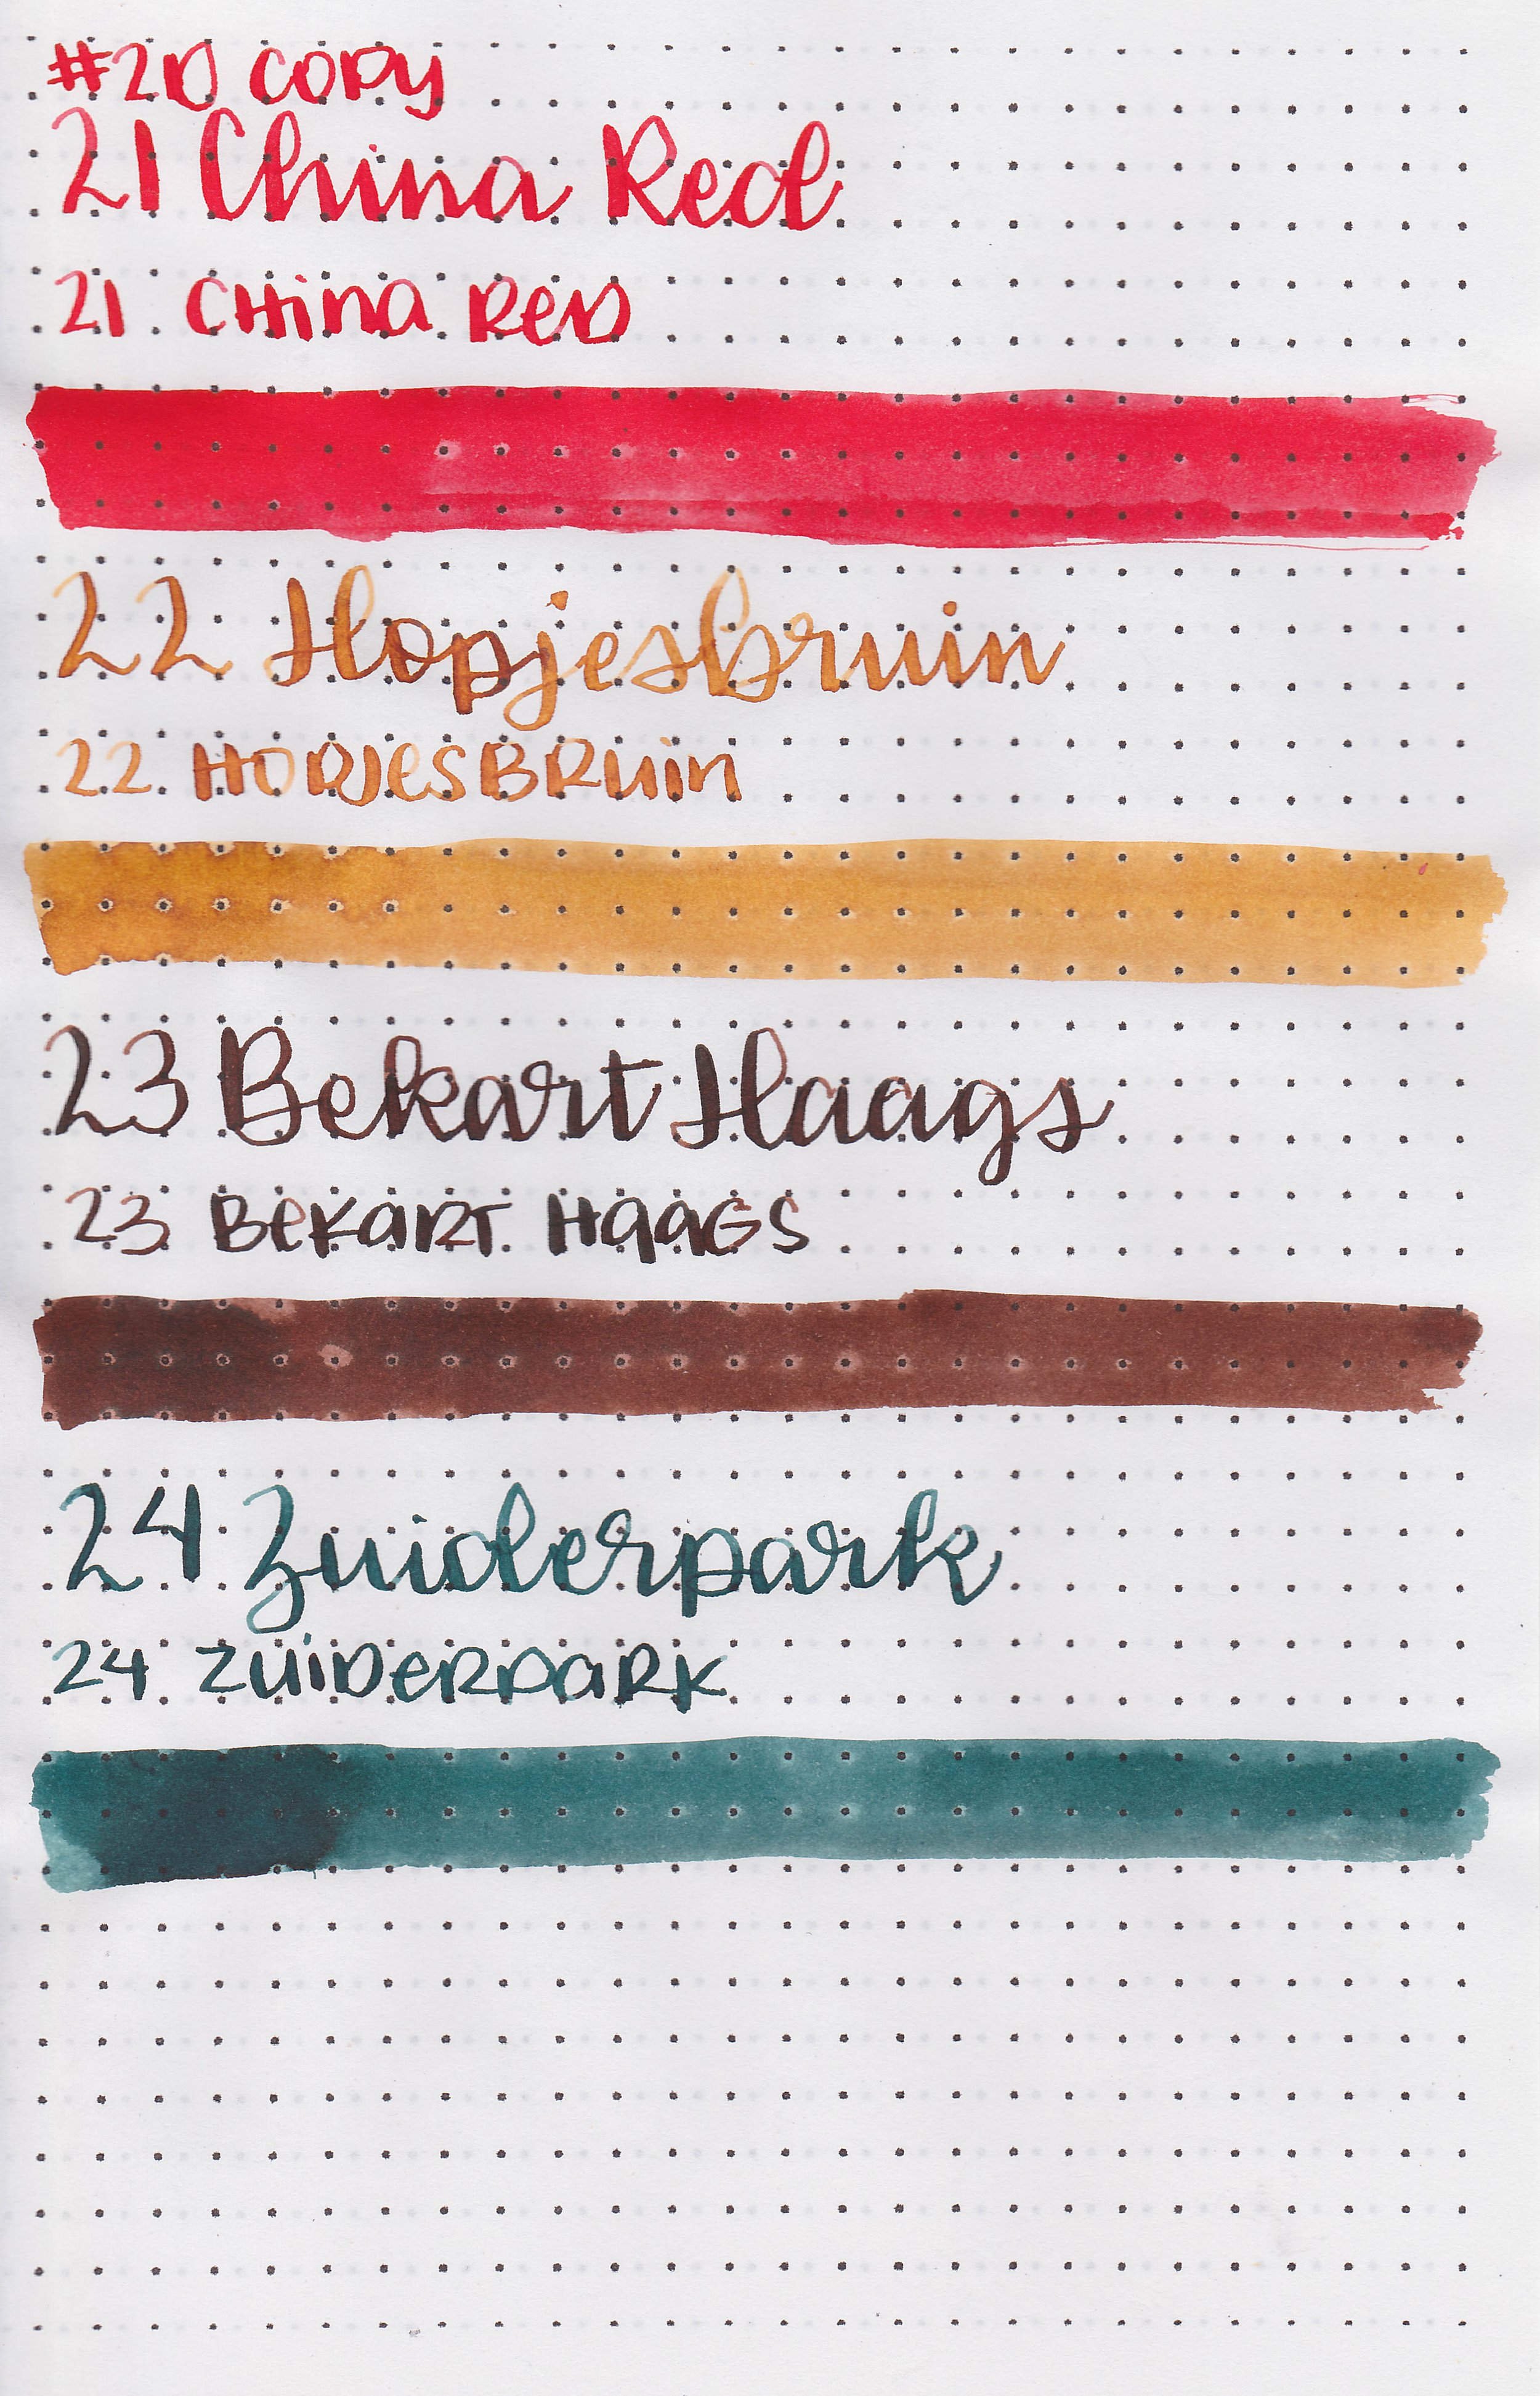 #20 COPY
21 China Red
21 CHina Red
22 Hopjesbruin
22 HOPJesBRuin
23 Bekart Haags
23 BeKaRT HaaGS
24 Zuiderpark
24 ZuiDeRPaRK